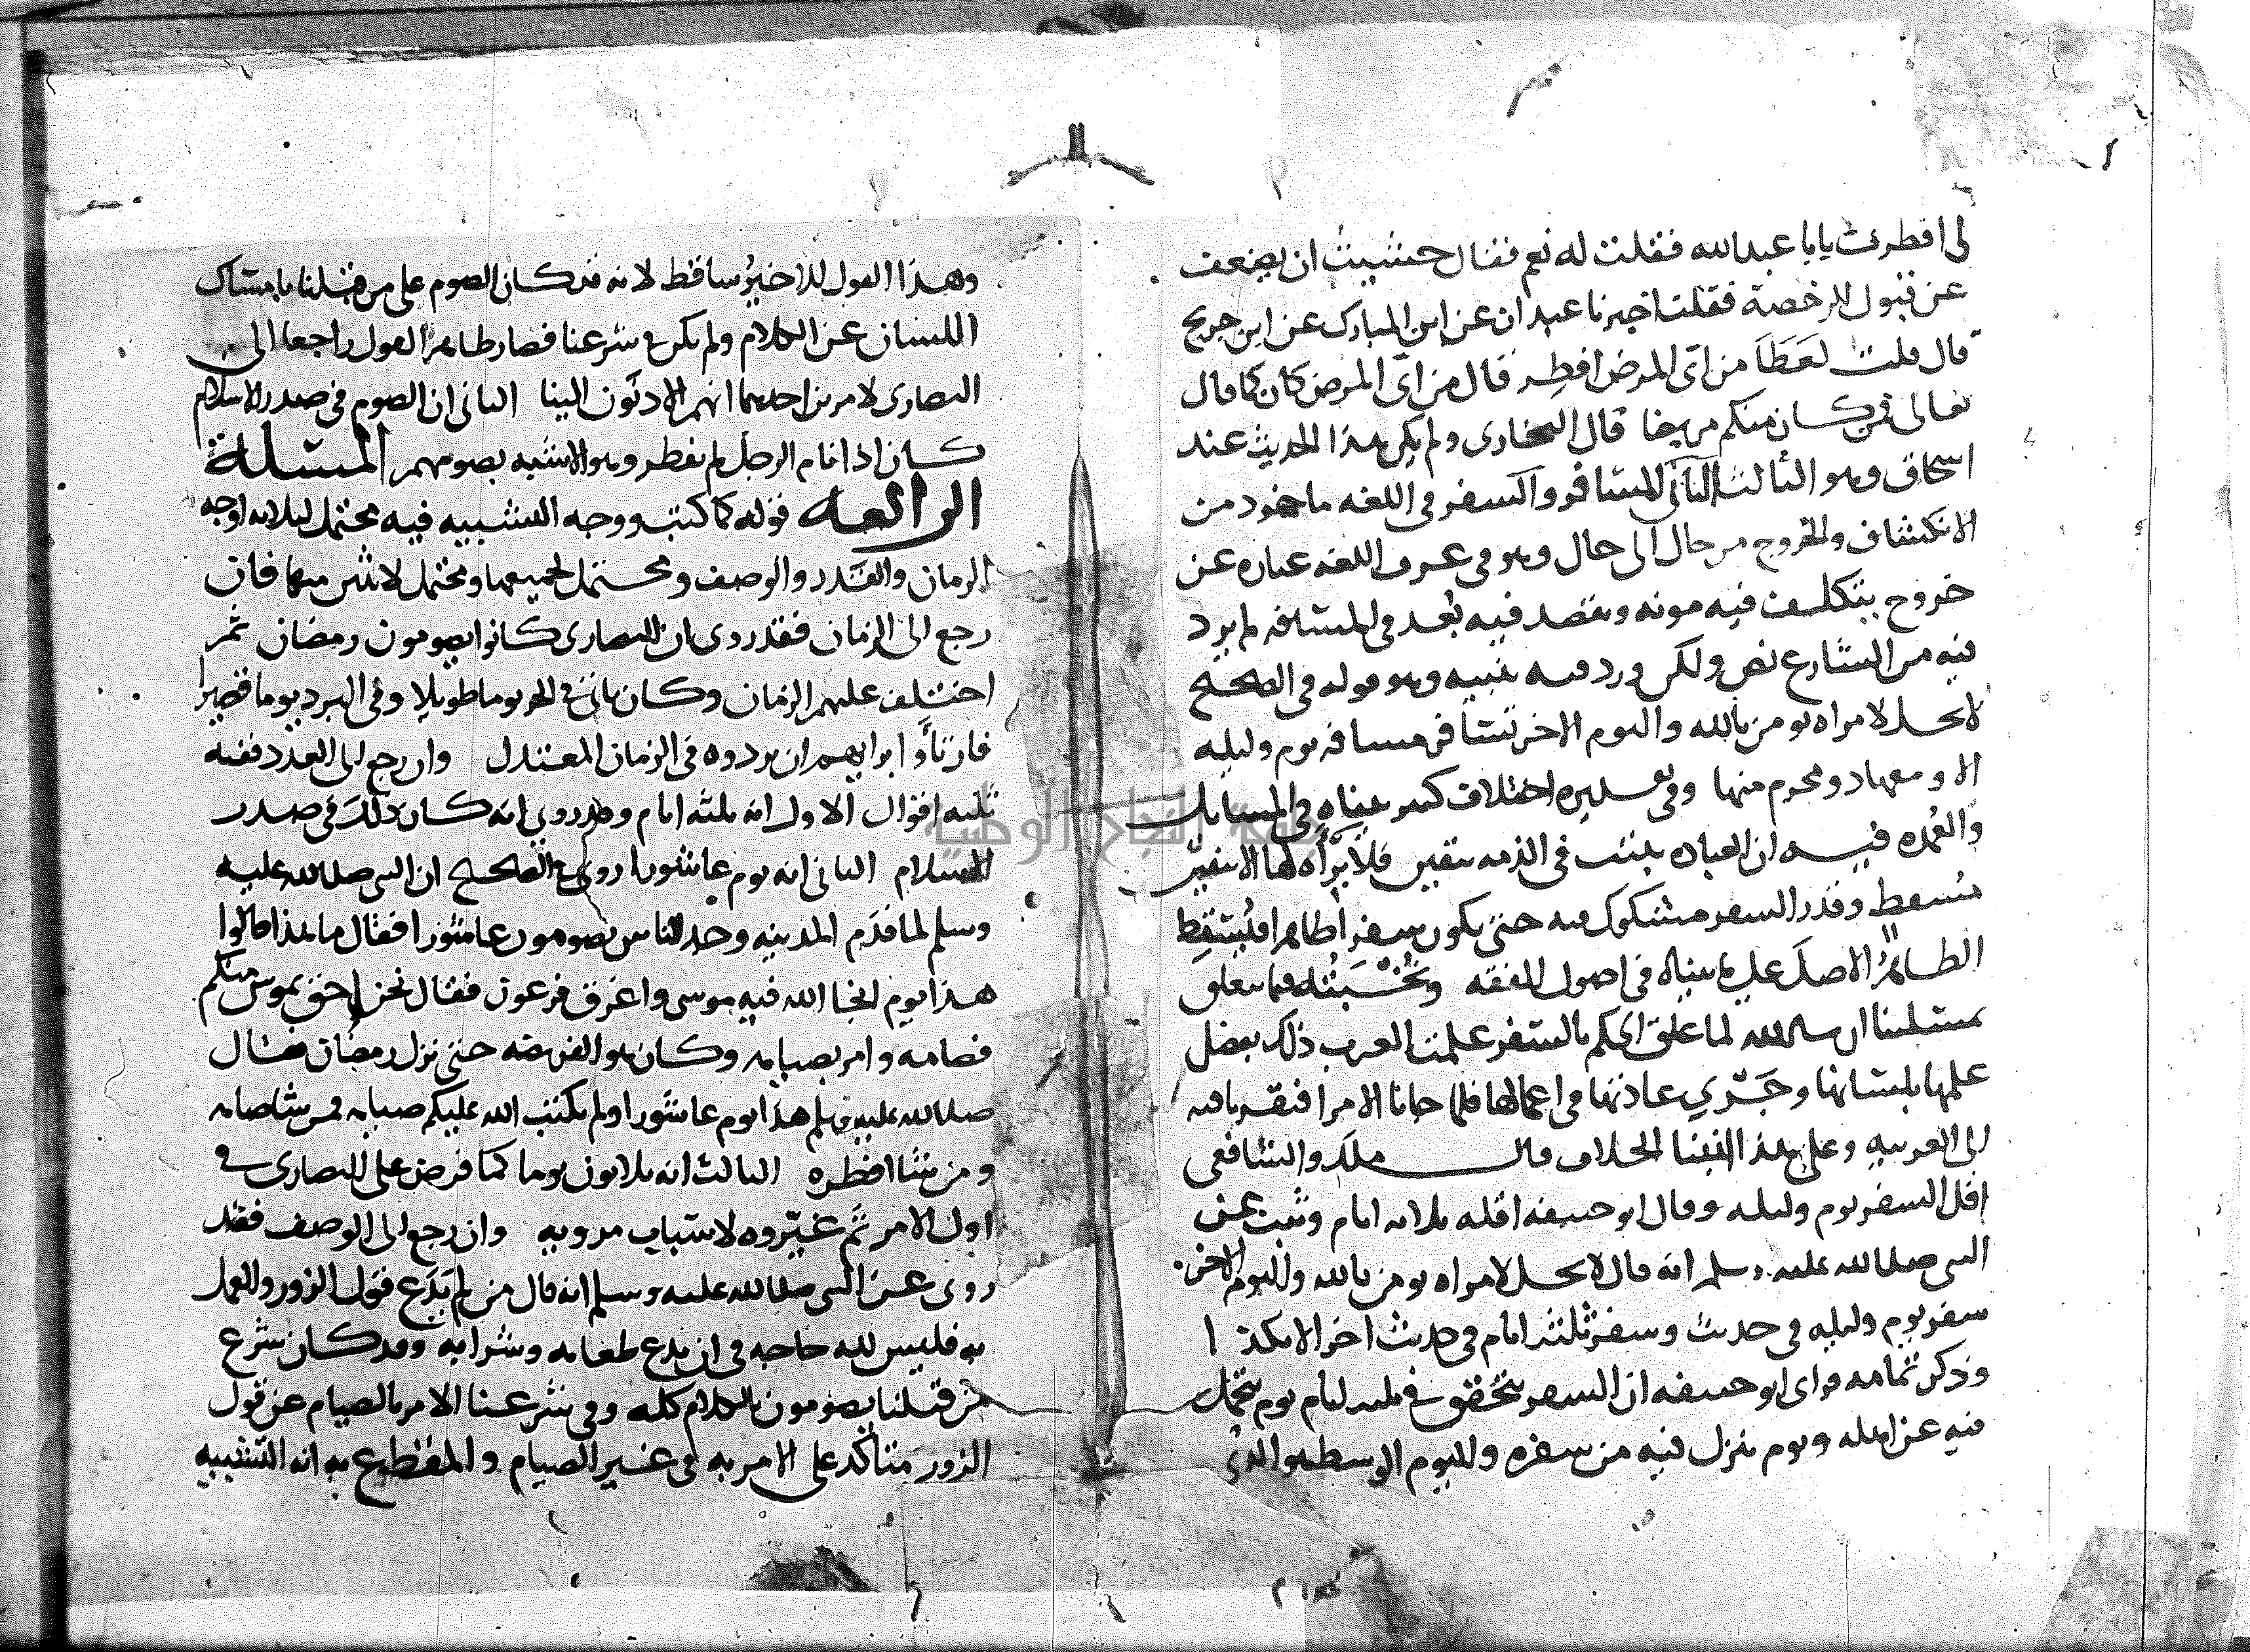 لى افطرت يابا عبد الله فقلت له نعم فقال حشيت ان يضعف
عن قبول الرخصة فقلت اخبرنا عبدان عن ابن المبارك عن ابن جريج
قال قلت لعطا من اى المرض افطر قال من اى المرض كان كما قال
تعالى فمن كان منكم مريضا قال البخارى ولم يكن هذا الحديث عند
اسحاق وهو الثالث الثانى المسافر والسفر فى اللغه ماخود من
الانكشاف والخروج من حال الى حال وهو فى عرف اللغه عباره عن
خروج يتكلف فيه مونه ويقصد فيه بعد فى المسافه لم يرد
فيه من الشارع نص ولكن ورد فيه تنبيه وهو قوله فى الصحيح
لا يحل لامراه تومن بالله واليوم الاخر تسافر مسافه يوم وليله
الا ومعها دو محرم منها وفى تفسيره اختلاف كثير بيناه فى المسايل
والعمده فيه ان العباده تثبت فى الذمه بيقين فلا براه لها الا بيقين
مسقط وقدر السفر مشكوك فيه حتى يكون سفرا ظاهرا فيسقط
الظاهر الاصل على ما بيناه فى اصول الفقه ونخبته فيما يتعلق
بمسلتنا ان الله لما علق الحكم بالسفر علمت العرب ذلك بفضل
علمها بلسانها وجرى عادتها فى اعمالها فلما جانا الامر افتقرنا فيه
الى العربيه وعلى هذا الفينا الخلاف قال ملك والشافعى
اقل السفر يوم وليله وقال ابو حنيفه اقله ثلاثه ايام وثبت عن
النبى صلى الله عليه وسلم انه قال لا يحل لامراه تومن بالله واليوم الاخر
سفر يوم وليله فى حديث وسفر ثلثه ايام فى حديث اخر الا هكذا
وذكر تمامه وراى ابو حنيفه ان السفر يتحقق فى ثلثه ايام يوم يتحمل
فيه عن اهله ويوم ينزل فيه من سفره واليوم الوسط هو الذى
وهذا القول الاخير ساقط لانه قد كان الصوم على من قبلنا بامساك
اللسان عن الكلام ولم يكن فى شرعنا فصار ظاهر القول راجعا الى
النصارى لامرين احدهما انهم الادنون الينا الثانى ان الصوم فى صدر الاسلام
كان اذا نام الرجل لم يفطر وهو الاشبه بصومهم المسلة
الرابعه قوله كما كتب ووجه التشبيه فيه محتمل لثلاثه اوجه
الزمان والقدر والوصف ومحتمل لجميعها ومحتمل لاثنين منها فان
رجع الى الزمان فقد روى ان النصارى كانوا يصومون رمضان ثم
اختلف عليهم الزمان وكان ياتى فى الحر يوما طويلا وفى البرد يوما قصيرا
فارتأوا برايهم ان يردوه فى الزمان المعتدل وان رجع الى العدد ففيه
ثلثه اقوال الاول انه ثلثه ايام وقد روى انه كان ذلك فى صدر
الاسلام الثانى انه يوم عاشورا روى فى الصحيح ان النبى صلى الله عليه
وسلم لما قدم المدينه وجد الناس يصومون عاشورا فقال ما هذا قالوا
هذا يوم انجا الله فيه موسى واغرق فرعون فقال نحن احق بموسى منكم
فصامه وامر بصيامه وكان هو الفريضه حتى نزل رمضان فقال
صلى الله عليه وسلم هذا يوم عاشورا ولم يكتب الله عليكم صيامه فمن شا صامه
ومن شا افطره الثالث انه ثلاثون يوما كما فرض على النصارى فى
اول الامر ثم غيروه لاسباب مرويه وان رجع الى الوصف فقد
روى عن النبى صلى الله عليه وسلم انه قال من لم يدع قول الزور والعمل
به فليس لله حاجه فى ان يدع طعامه وشرابه وقد كان شرع
من قبلنا يصومون بالكلام كله وفى شرعنا الامر بالصيام عن قول
الزور متأكد على الامر به فى غير الصيام والمقطوع به انه التشبيه